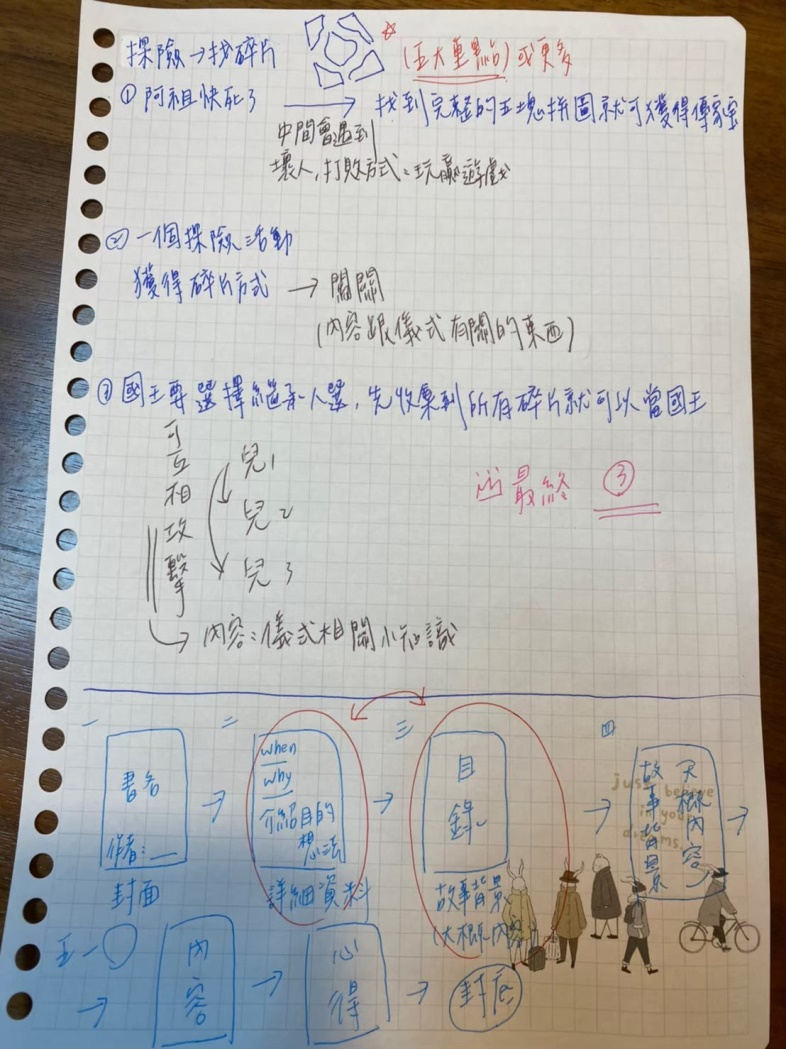 探險→找碎片
(五大重點)或更多
① 阿祖快死了 → 找到完整的五塊拼圖就可獲得傳家寶
中間會遇到
壞人,打敗方式:玩贏遊戲
② 一個探險活動
獲得碎片方式 → 闖關
(內容跟儀式有關的東西)
③ 國王要選擇繼承人選,先收集到所有碎片就可以當國王
可互相攻擊
兒1
兒2
兒3
最終 ③
→ 內容:儀式相關小知識
一
書名
作者:__
封面
二
when
why
介紹目的
想法
詳細資料
三
目錄
故事背景
(大概內容
四
故事背景
大概內容
just believe
in your
dreams.
五-
內容
心得
封底